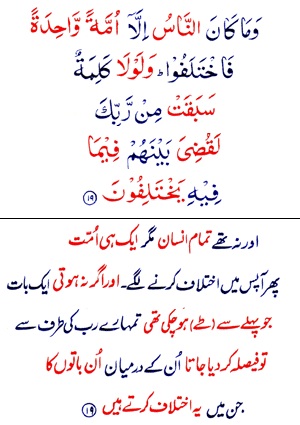 وَمَا كَانَ النَّاسُ اِلَّاۤ اُمَّةً وَّاحِدَةً
فَاخْتَلَفُوْا ؕ وَلَوْلَا كَلِمَةٌ
سَبَقَتْ مِنْ رَّبِّكَ
لَقُضِىَ بَيْنَهُمْ فِيْمَا
فِيْهِ يَخْتَلِفُوْنَ ﴿۱۹﴾
اور نہ تھے تمام انسان مگر ایک ہی اُمّت
پھر آپس میں اختلاف کرنے لگے۔ اور اگر نہ ہوتی ایک بات
جو پہلے سے (طے) ہو چکی تھی تمہارے رب کی طرف سے
تو فیصلہ کر دیا جاتا اُن کے درمیان اُن باتوں کا
جن میں یہ اختلاف کرتے ہیں ﴿۱۹﴾